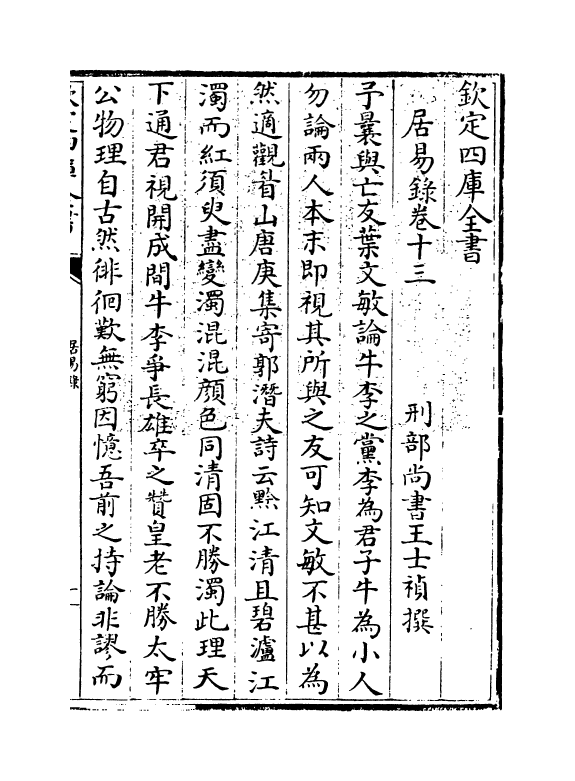 欽定四庫全書
居易錄卷十三
刑部尚書王士禎撰
予曩與亡友葉文敏論牛李之黨李為君子牛為小人
勿論兩人本末即視其所與之友可知文敏不甚以為
然適觀眉山唐庚集寄郭潛夫詩云黔江清且碧瀘江
濁而紅須臾盡變濁混混顔色同清固不勝濁此理天
下通君視開成間牛李爭長雄卒之贊皇老不勝太牢
公物理自古然徘徊歎無窮因憶吾前之持論非謬而
居易錄